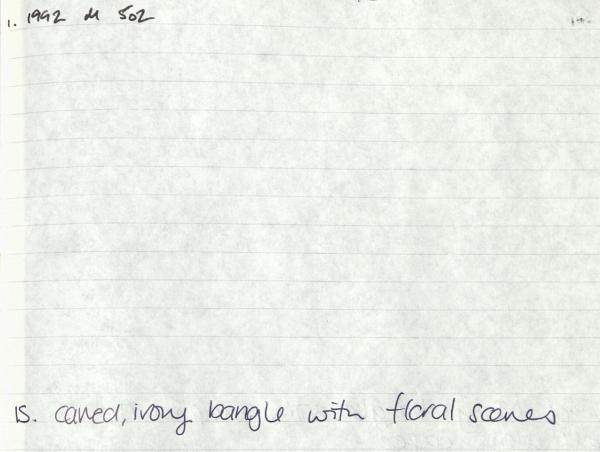 1. 1992 M 502
15. carved, ivory bangle with floral scenes